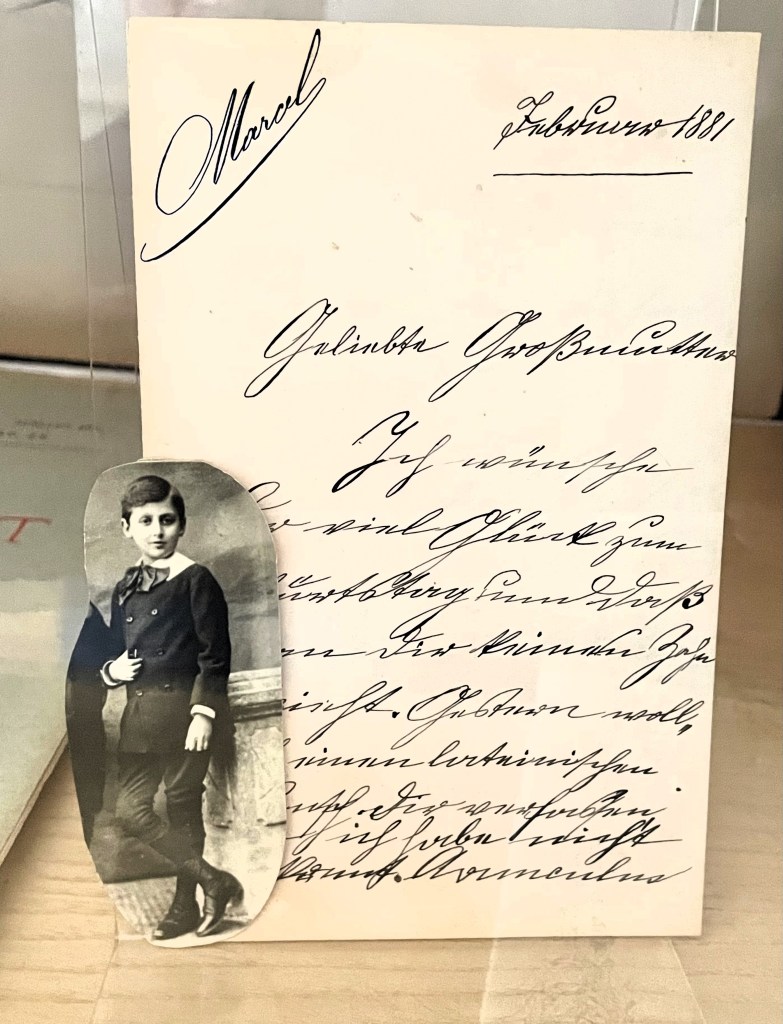 Marcel
Februar 1881
Geliebte Großmutter
Ich wünsche
viel Glück zum
urtstag und daß
Dir keinen Zahn
Gestern woll„
einen lateinischen
Dir verfassen,
ich habe nicht